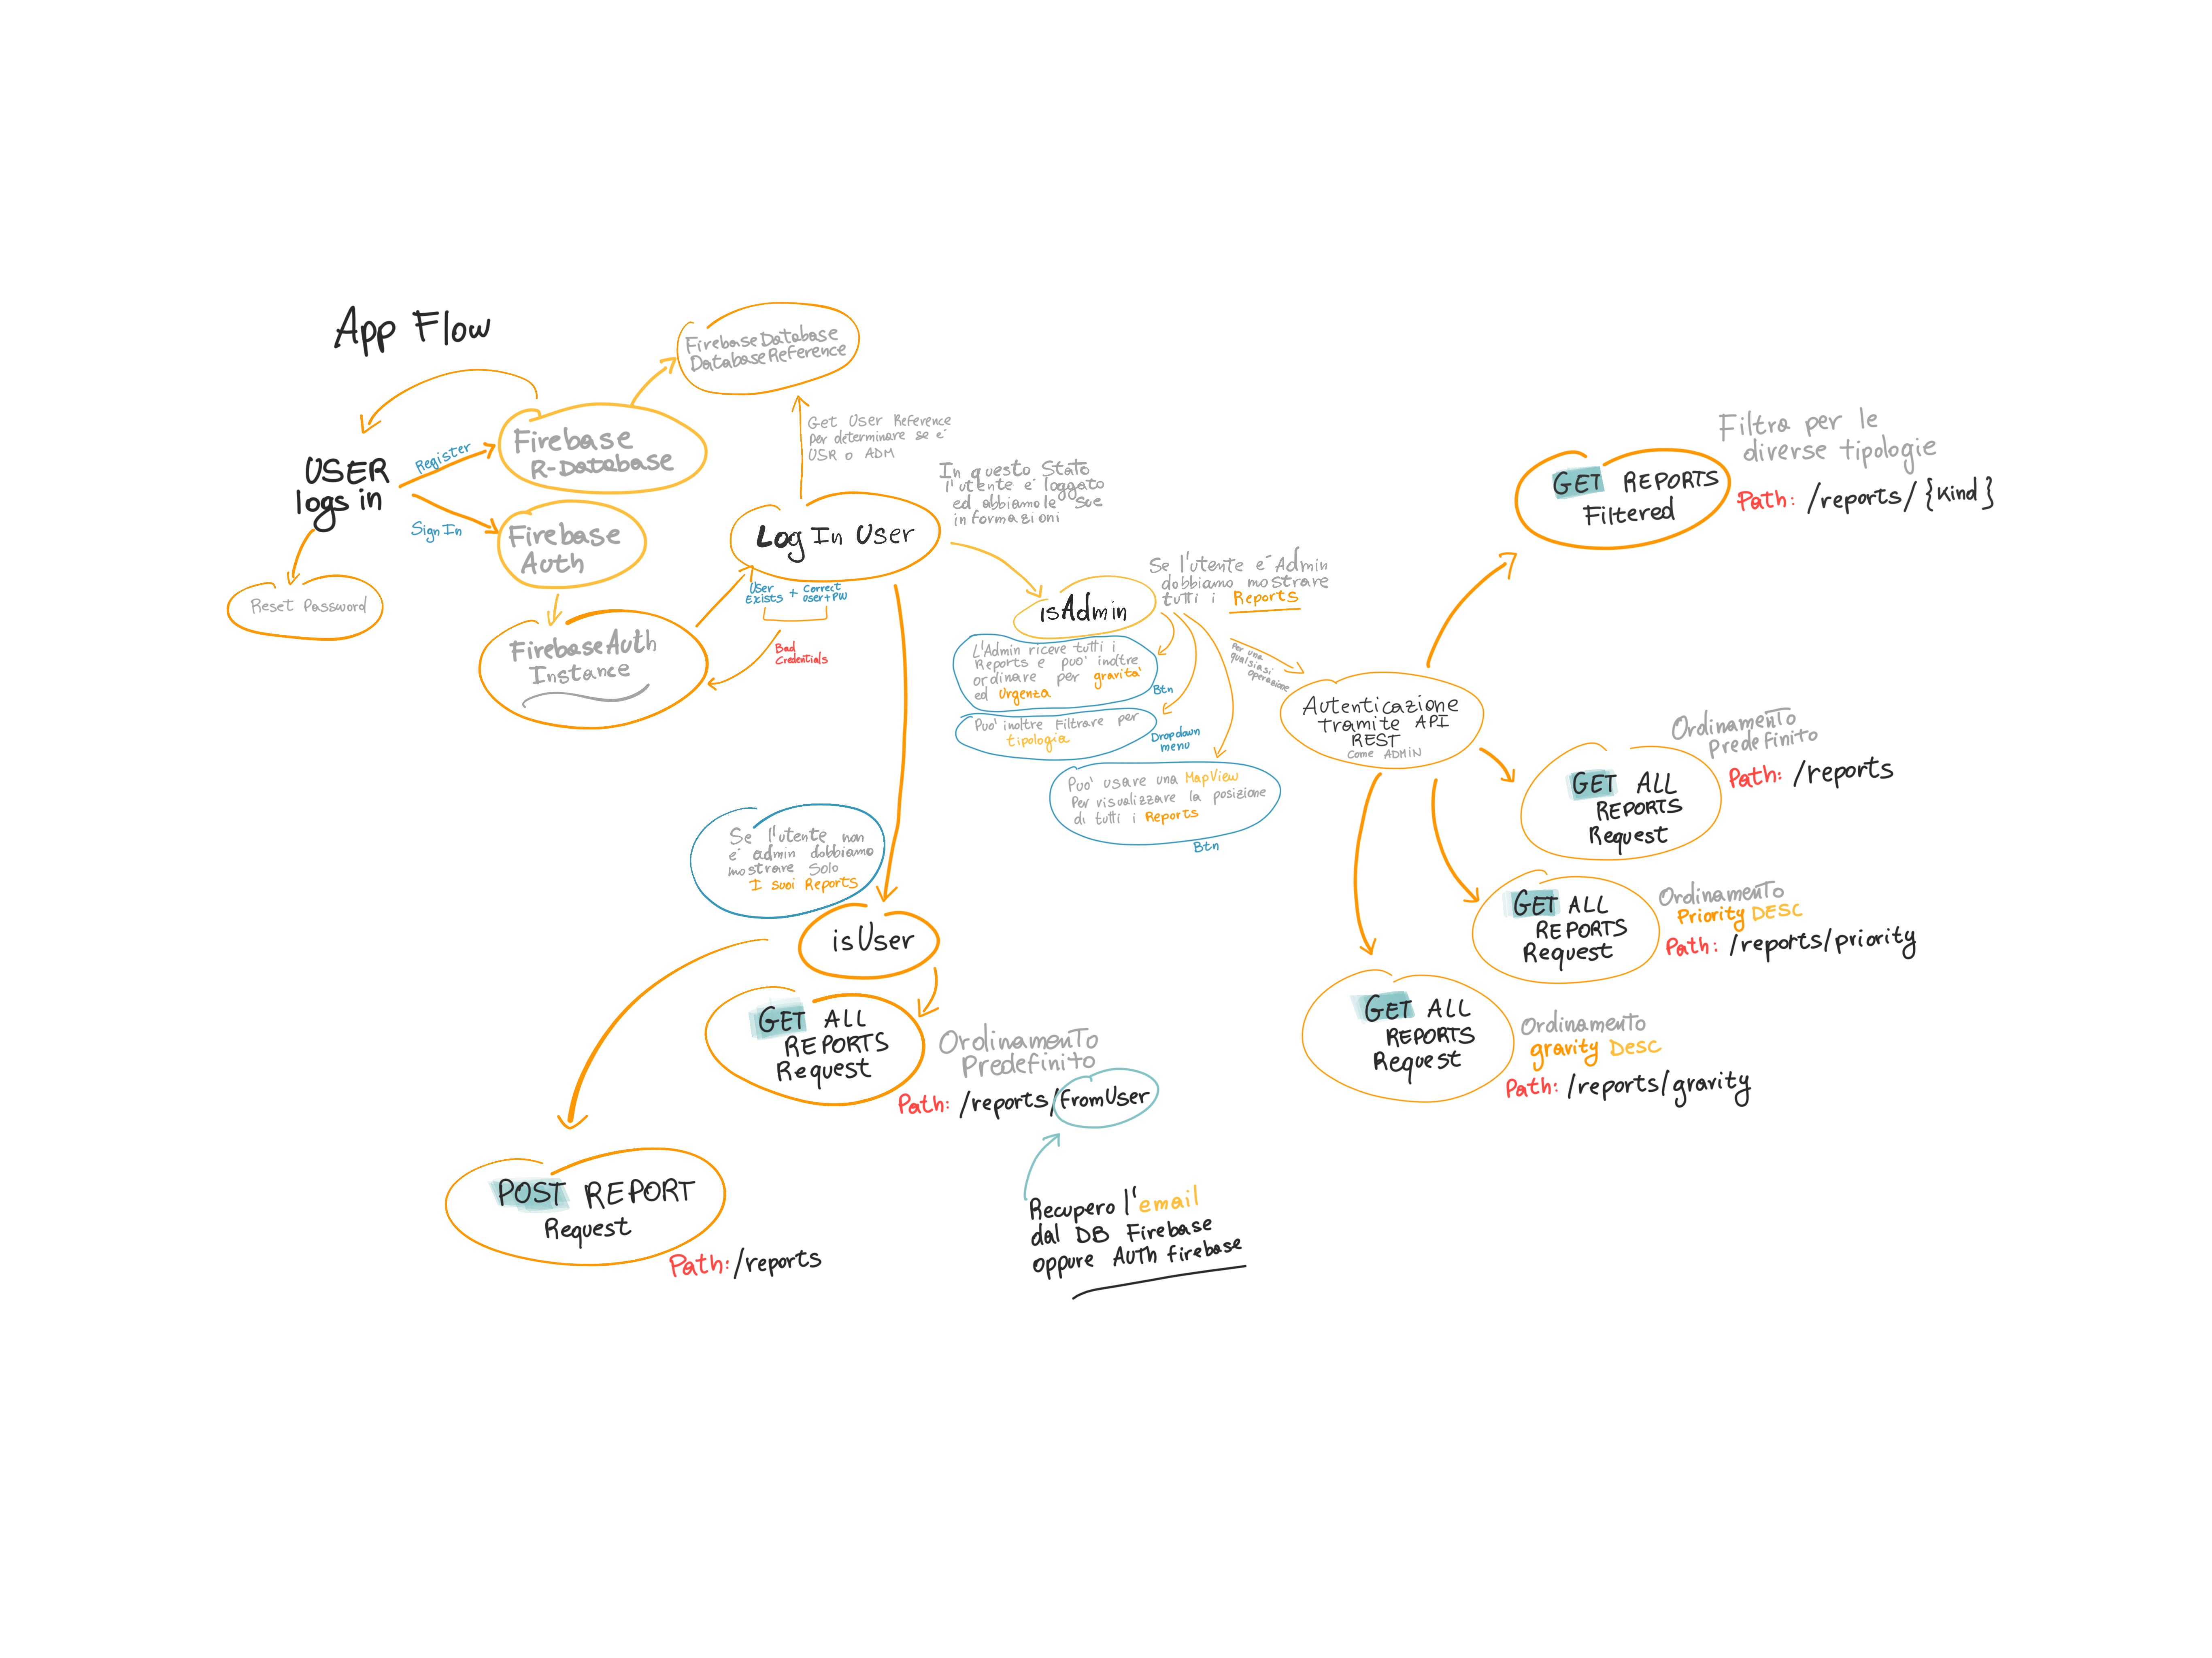 App Flow
FirebaseDatabase
DatabaseReference
Firebase
R-Database
Register
USER
logs in
Sign In
Firebase
Auth
Reset Password
FirebaseAuth
Instance
Get User Reference
per determinare se e'
USR o ADM
Log In User
User
Exists + Correct
User+PW
Bad
Credentials
In questo Stato
l'utente e' loggato
ed abbiamo le sue
informazioni
isAdmin
Se l'utente e' Admin
dobbiamo mostrare
tutti i Reports
L'Admin riceve tutti i
Reports e puo' inoltre
ordinare per gravita'
ed Urgenza
Btn
Puo' inoltre Filtrare per
tipologia
Dropdown
menu
Puo' usare una MapView
Per visualizzare la posizione
di tutti i Reports
Btn
Per una
qualsiasi
operazione
Autenticazione
tramite API
REST
Come ADMIN
GET REPORTS
Filtered
Filtro per le
diverse tipologie
Path: /reports/{Kind}
GET ALL
REPORTS
Request
Ordinamento
predefinito
Path: /reports
GET ALL
REPORTS
Request
Ordinamento
Priority DESC
Path: /reports/priority
GET ALL
REPORTS
Request
Ordinamento
gravity DESC
Path: /reports/gravity
Se l'utente non
e' admin dobbiamo
mostrare Solo
I suoi Reports
isUser
GET ALL
REPORTS
Request
Ordinamento
Predefinito
Path: /reports/fromUser
Recupero l'email
dal DB Firebase
oppure AUTH firebase
POST REPORT
Request
Path: /reports